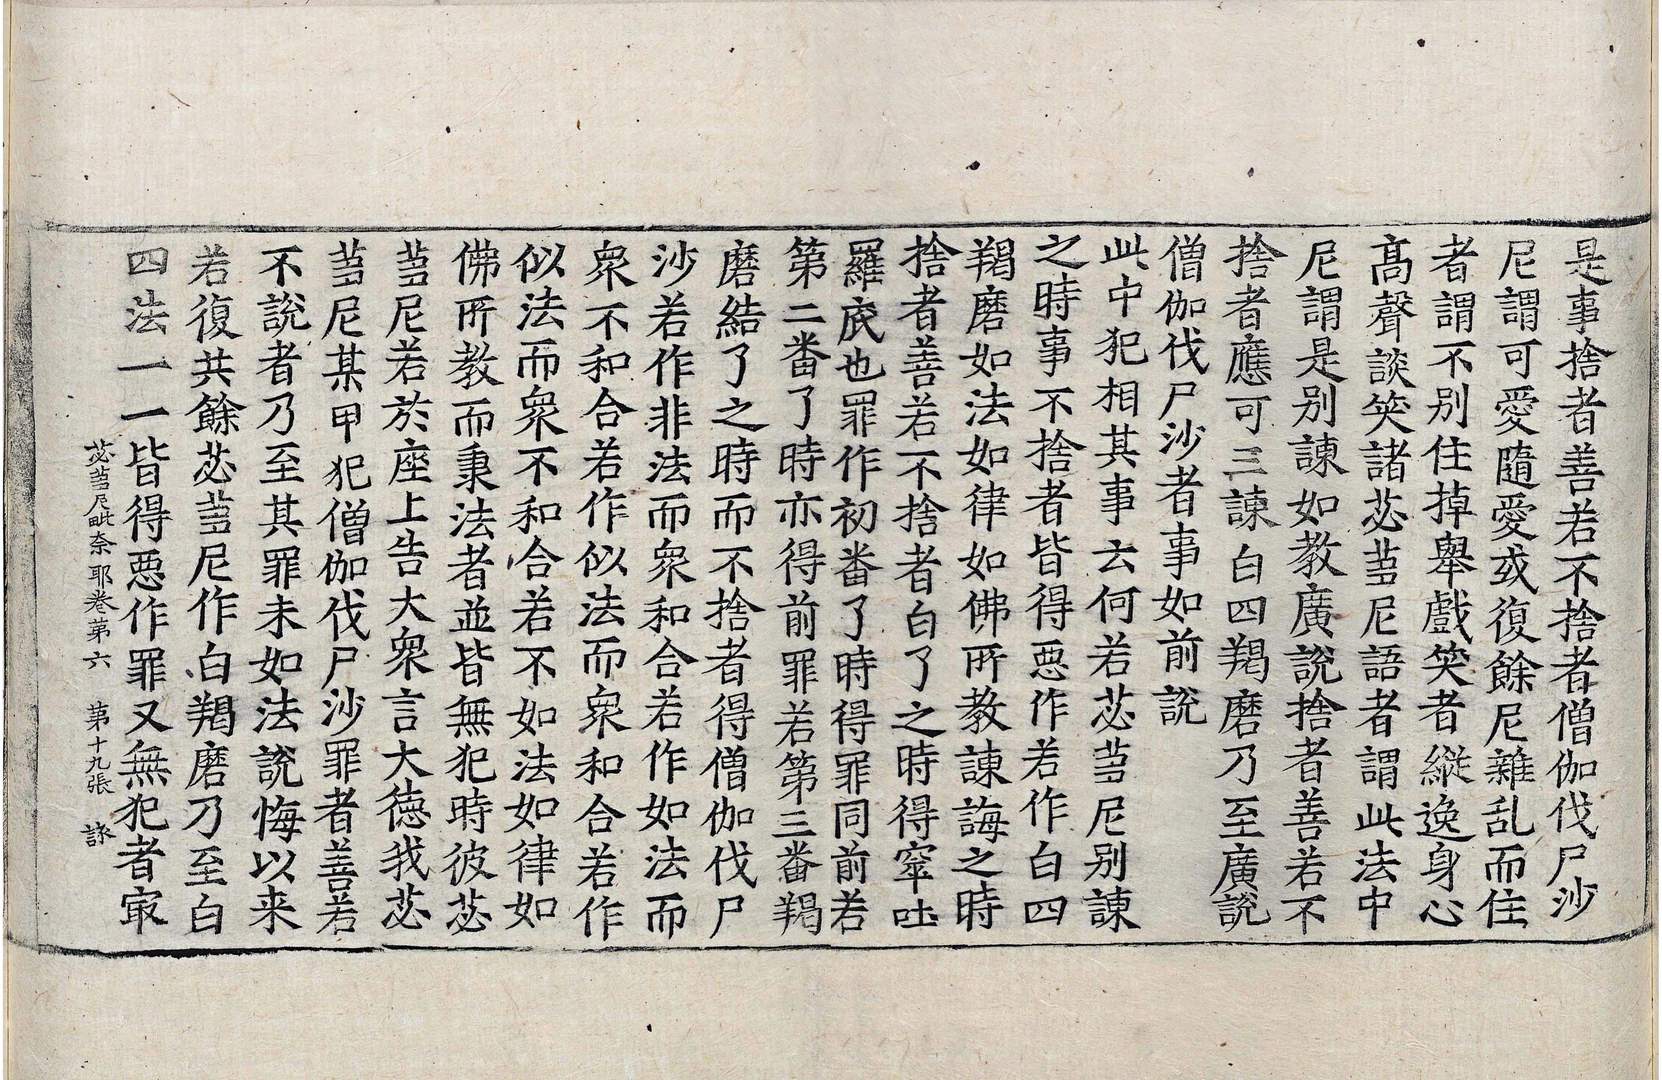 是事捨者善若不捨者僧伽伐尸沙
尼謂可愛隨愛或復餘尼雜乱而住
者謂不別住掉舉戲笑者縱逸身心
髙聲談笑諸苾芻尼語者謂此法中
尼謂是别諫如教廣說捨者善若不
捨者應可三諫白四羯磨乃至廣說
僧伽伐尸沙者事如前說
此中犯相其事云何若苾芻尼别諫
之時事不捨者皆得惡作若作白四
羯磨如法如律如佛所教諫誨之時
捨者善若不捨者白了之時得窣吐
羅底也罪作初番了時得罪同前若
第二番了時亦得前罪若第三番羯
磨結了之時而不捨者得僧伽伐尸
沙若作非法而衆和合若作如法而
衆不和合若作似法而衆和合若作
似法而衆不和合若不如法如律如
佛所教而秉法者並皆無犯時彼苾
芻尼若於座上告大衆言大德我苾
芻尼某甲犯僧伽伐尸沙罪者善若
不說者乃至其罪未如法說悔以来
若復共餘苾芻尼作白羯磨乃至白
四法一一皆得惡作罪又無犯者冣
苾芻尼毗奈耶卷第六 第十九張 詠